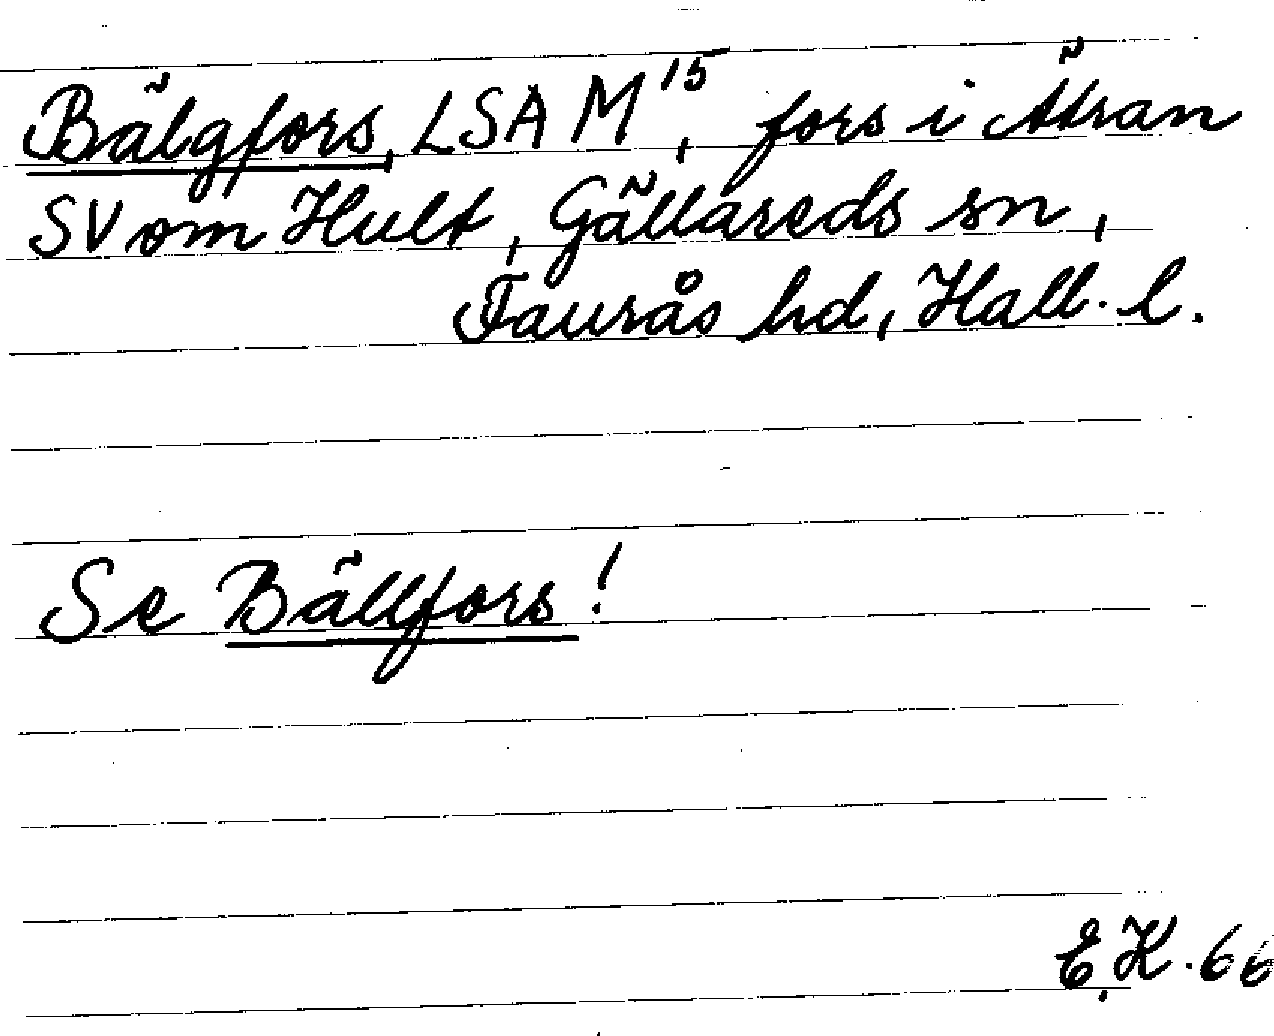 Bälgfors, LSA M¹⁵, fors i Ätran
SV om Hult, Gällareds sn,
Faurås hd, Hall. l.
Se Bällfors!
E.K. 66